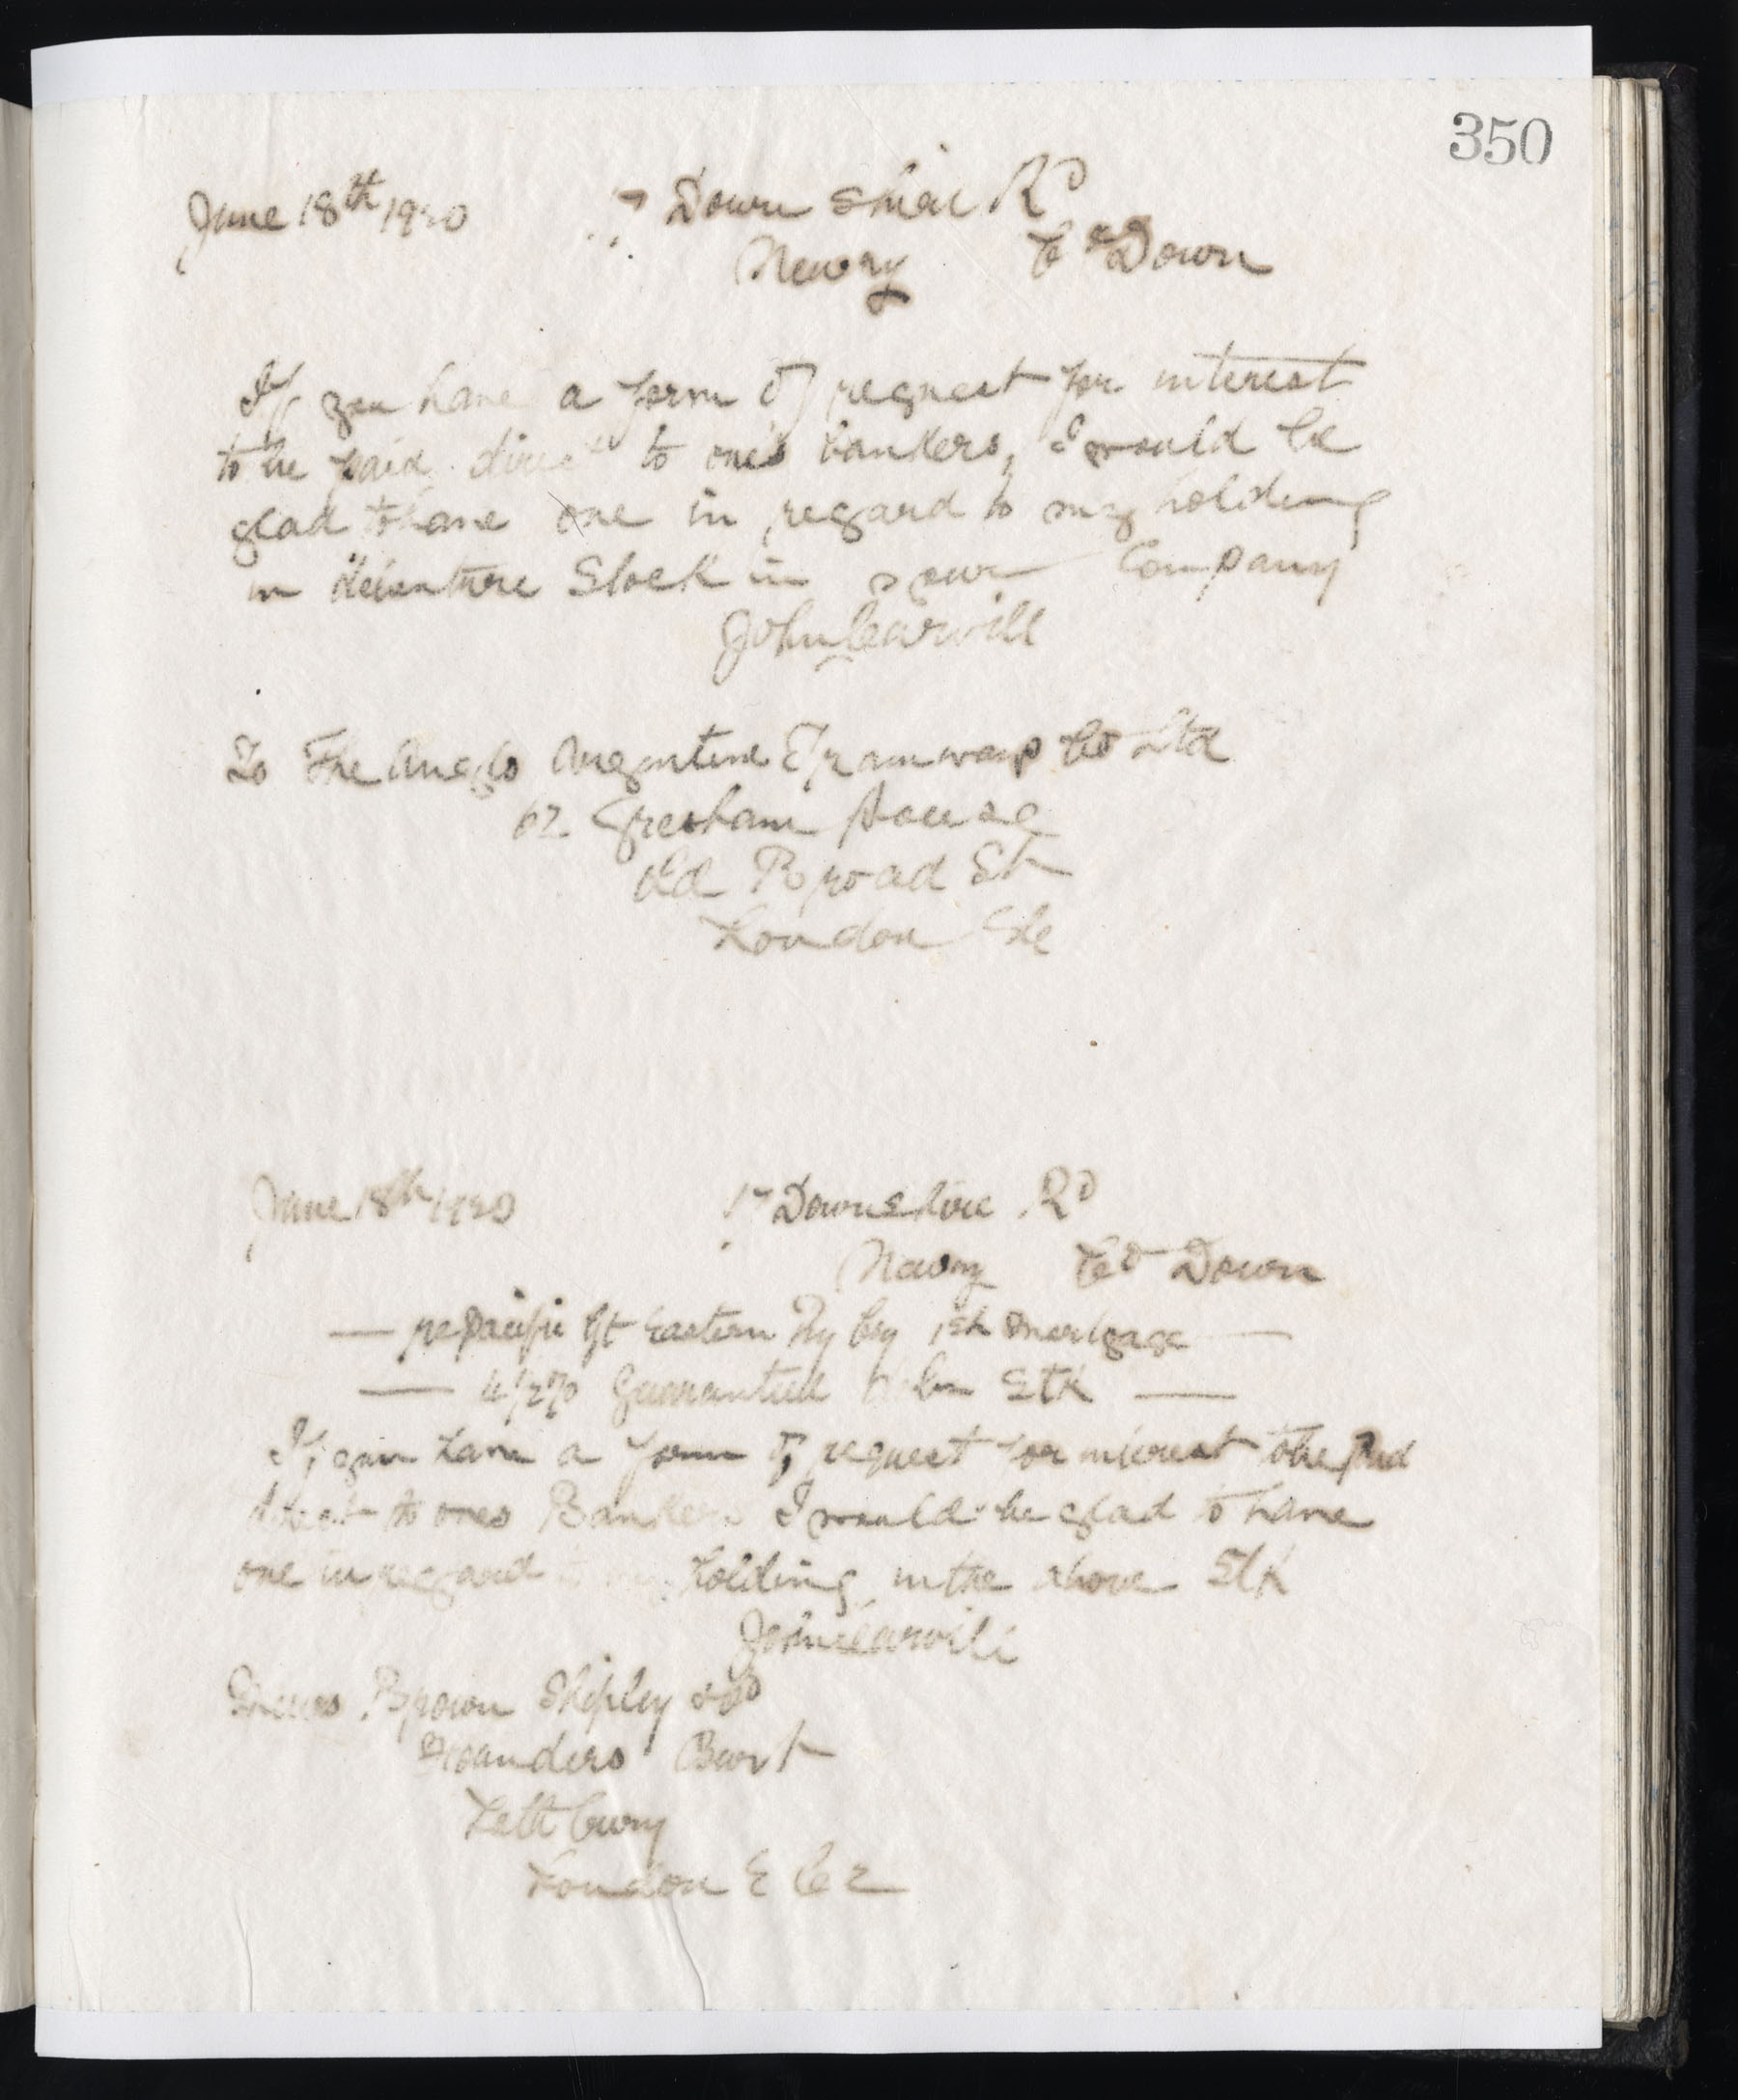 350
June 18th 1920 17 Downshire Rd
Newry Co Down
If you have a form of request for interest
to be paid direct to one's bankers, I would be
glad to have one in regard to my holding
in debenture Stock in your Company
John Carvill
To The Anglo Argentine Tramways Co Ltd
62 Gresham House
Old Broad St
London EC
June 18th 1920 17 Downshire Rd
Newry Co Down
— re Pacific Gt Eastern Ry Coy 1st Mortgage —
— 4 1/2% Guaranteed Deben Stk —
If you have a form of request for interest to be paid
direct to ones Bankers I would be glad to have
one in regard to my holding in the above Stk
John Carvill
Messrs Brown Shipley & Co
Founders Court
Lothbury
London E C 2